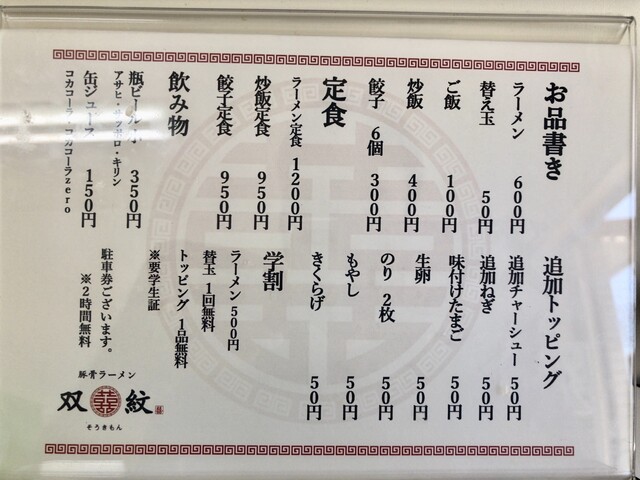 お品書き
ラーメン 600円
替え玉 50円
ご飯 100円
炒飯 400円
餃子 6個 300円
定食
ラーメン定食 1200円
炒飯定食 950円
餃子定食 950円
飲み物
瓶ビール小 350円
アサヒ・サッポロ・キリン
缶ジュース 150円
コカコーラ・コカコーラzero
追加トッピング
追加チャーシュー 50円
追加ねぎ 50円
味付けたまご 50円
生卵 50円
のり 2枚 50円
もやし 50円
きくらげ 50円
学割
ラーメン 500円
替玉 1回無料
トッピング 1品無料
※要学生証
駐車券ございます。
※2時間無料
豚骨ラーメン
双 囍 紋
そうきもん